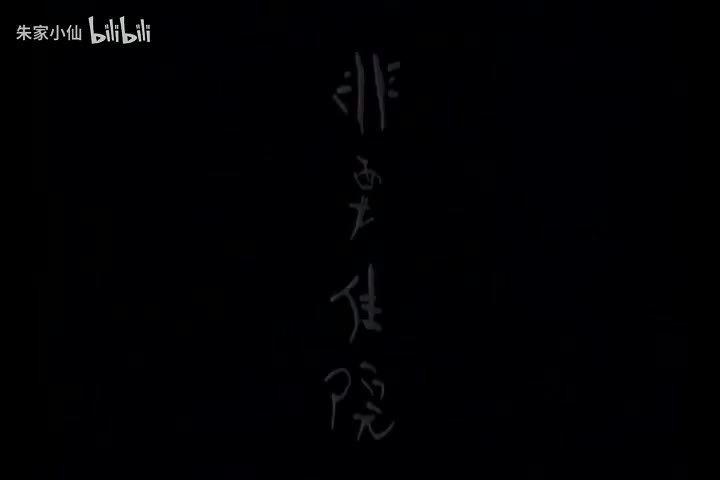 朱家小仙 bilibili
非要住院